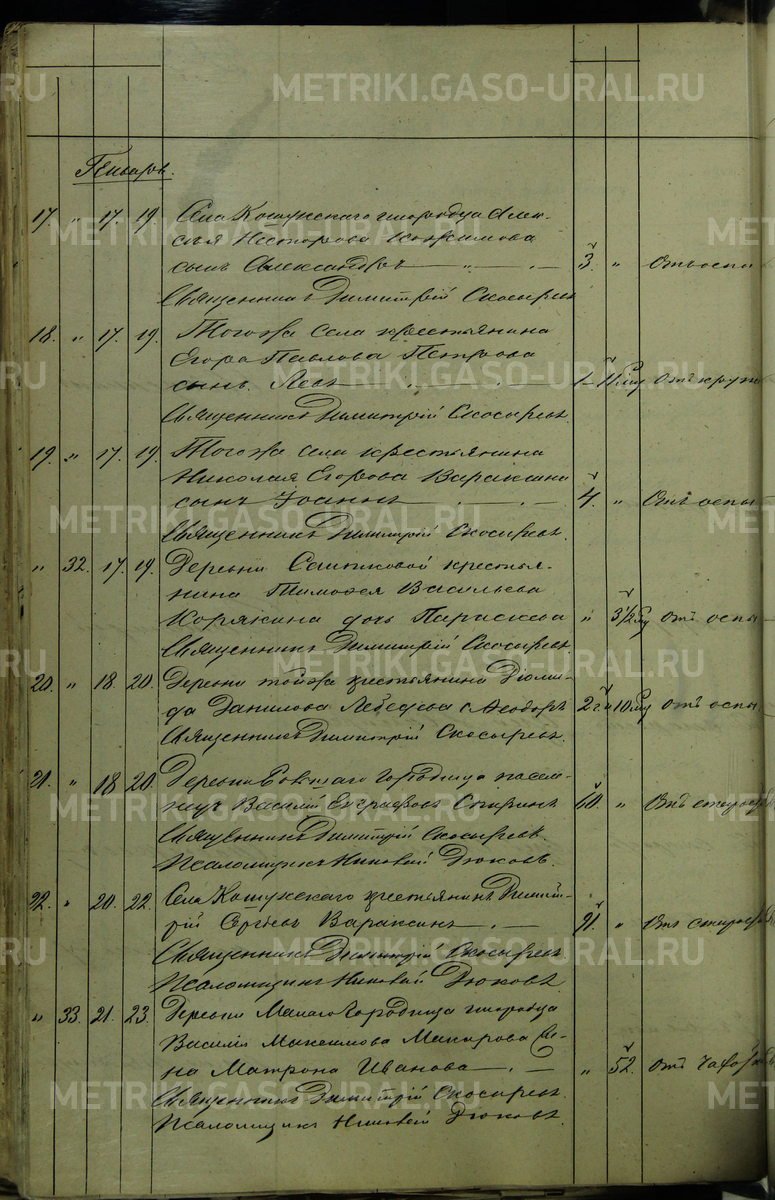 Генварь.
17. " 17. 19. Села Кошукскаго инородца Алек-
сѣя Несторова
сынъ Александръ 3. " Отъ оспы
Священникъ Димитрій Скосыревъ
18. " 17. 19. Того же села крестьянина
Егора Павлова Петрова
сынъ Левъ 11 му
Священникъ Димитрій Скосыревъ.
19. " 17. 19. Того же села крестьянина
Николая Егорова Вараксина
сынъ Іоаннъ 4. " Отъ оспы
Священникъ Димитрій Скосыревъ.
" 32. 17. 19. Деревни крестья-
нина Тимофея Васильева
Корякина дочь Параскева " 3½ му отъ оспы
Священникъ Димитрій Скосыревъ.
20. " 18. 20. Деревни тойже крестьянина Діоми-
да Данилова Лебедева с. Ѳеодоръ 2 г. 10 му отъ оспы
Священникъ Димитрій Скосыревъ.
21. " 18 20. Деревни Городища
Василій Евграфовъ Спиринъ 60. " Отъ старости
Священникъ Димитрій Скосыревъ.
Псаломщикъ Николай Дюковъ.
22. " 20. 22. Села Кошукскаго крестьянинъ Димит-
рій Сергѣевъ Вараксинъ 91. " Отъ старости
Священникъ Димитрій Скосыревъ
Псаломщикъ Николай Дюковъ
" 33. 21. 23. Деревни Малаго Городища инородца
Василія Максимова Макарова же-
на Матрона Иванова " 52. отъ чахотки
Священникъ Димитрій Скосыревъ.
Псаломщикъ Николай Дюковъ.
METRIKI.GASO-URAL.RU